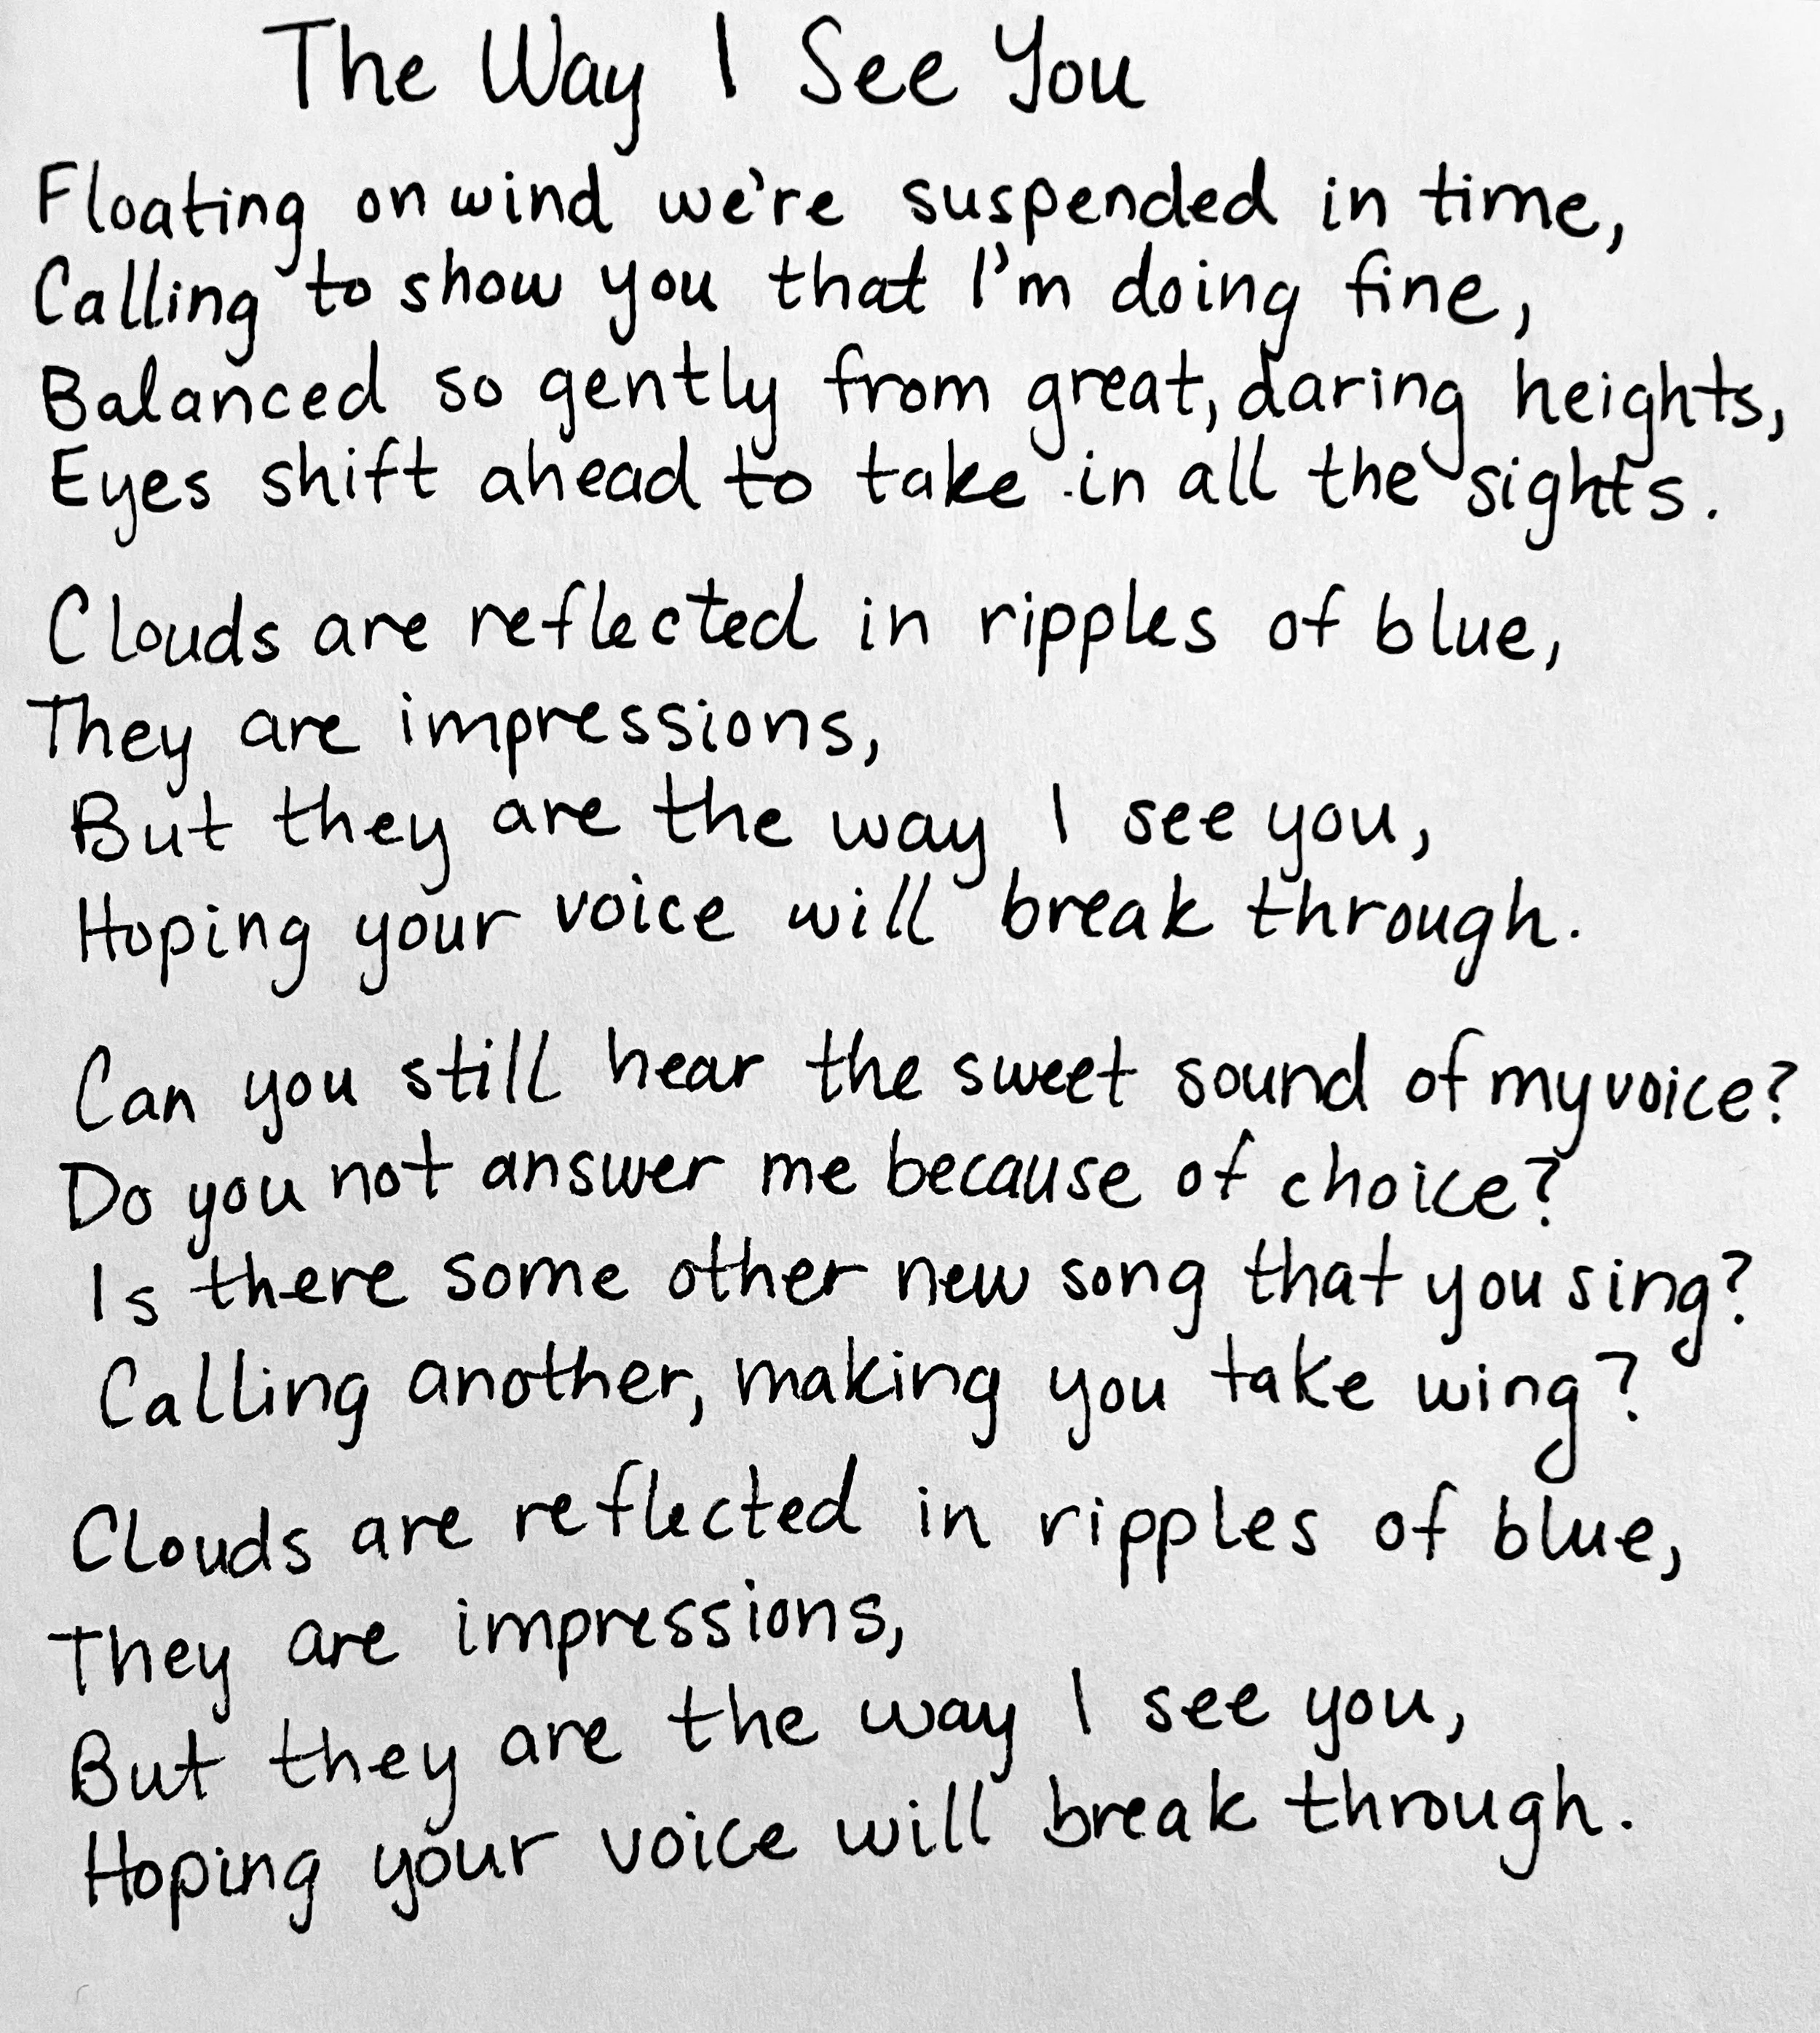 The Way I See You
Floating on wind we're suspended in time,
Calling to show you that I'm doing fine,
Balanced so gently from great, daring heights,
Eyes shift ahead to take in all the sights.
Clouds are reflected in ripples of blue,
They are impressions,
But they are the way I see you,
Hoping your voice will break through.
Can you still hear the sweet sound of my voice?
Do you not answer me because of choice?
Is there some other new song that you sing?
Calling another, making you take wing?
Clouds are reflected in ripples of blue,
They are impressions,
But they are the way I see you,
Hoping your voice will break through.